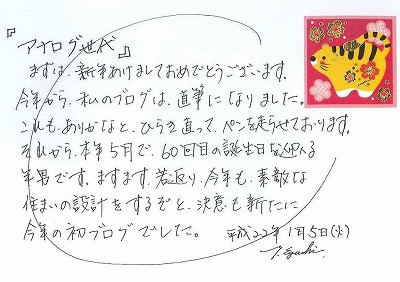 『アナログ世代』
まずは、新年あけましておめでとうございます。
今年から、私のブログは、直筆になりました。
これも、ありかなと、ひらき直って、ペンを走らせております。
それから、本年5月で、60回目の誕生日を迎える
年男です。ますます、若返り、今年も、素敵な
住まいの設計をするぞと、決意も新たに
今年の初ブログでした。 平成22年1月5日(火)